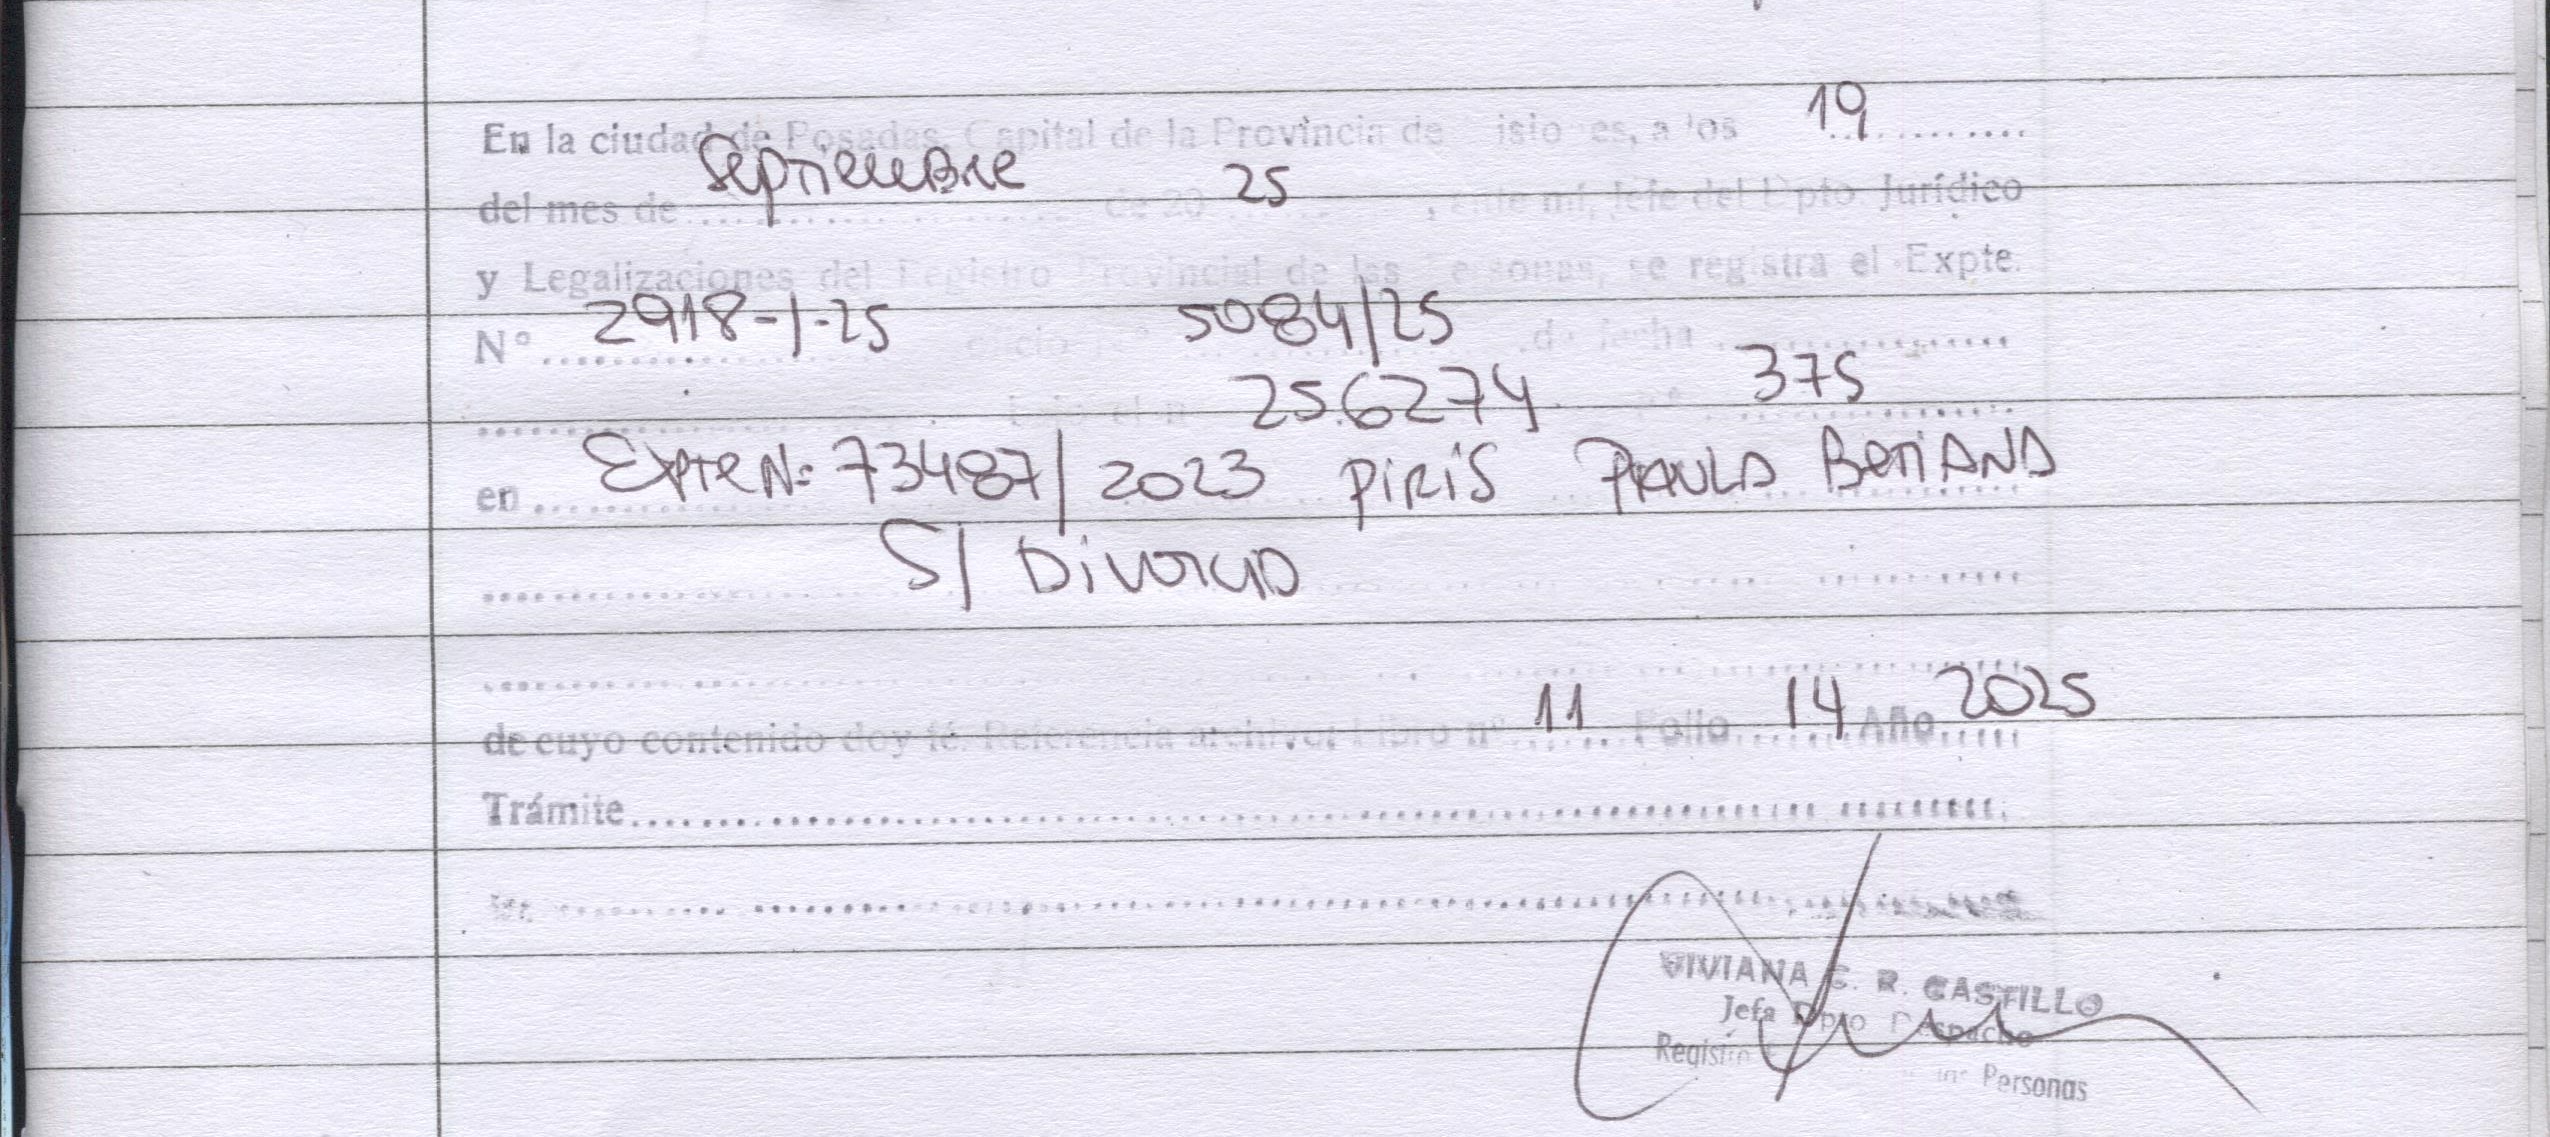 En la ciudad de Posadas, Capital de la Provincia de isiones, a los 19
del mes de Septiembre de 20 25, ante mi, Jefe del Dpto. Jurídico
y Legalizaciones del Registro Provincial de las Personas, se registra el Expte.
N° 2918-1-25 oficio n° 5084/25 de fecha
bajo el n° 256274 n° 375
en Expte N: 73487/2023 PIRIS PAULA BETIANA
S/ Divorcio
de cuyo contenido doy fé. Referencia archivo: Libro n° 11 Folio 14 Año 2025
Trámite
VIVIANA C. R. CASTILLO
Jefa Dpto Despacho
Registro las Personas